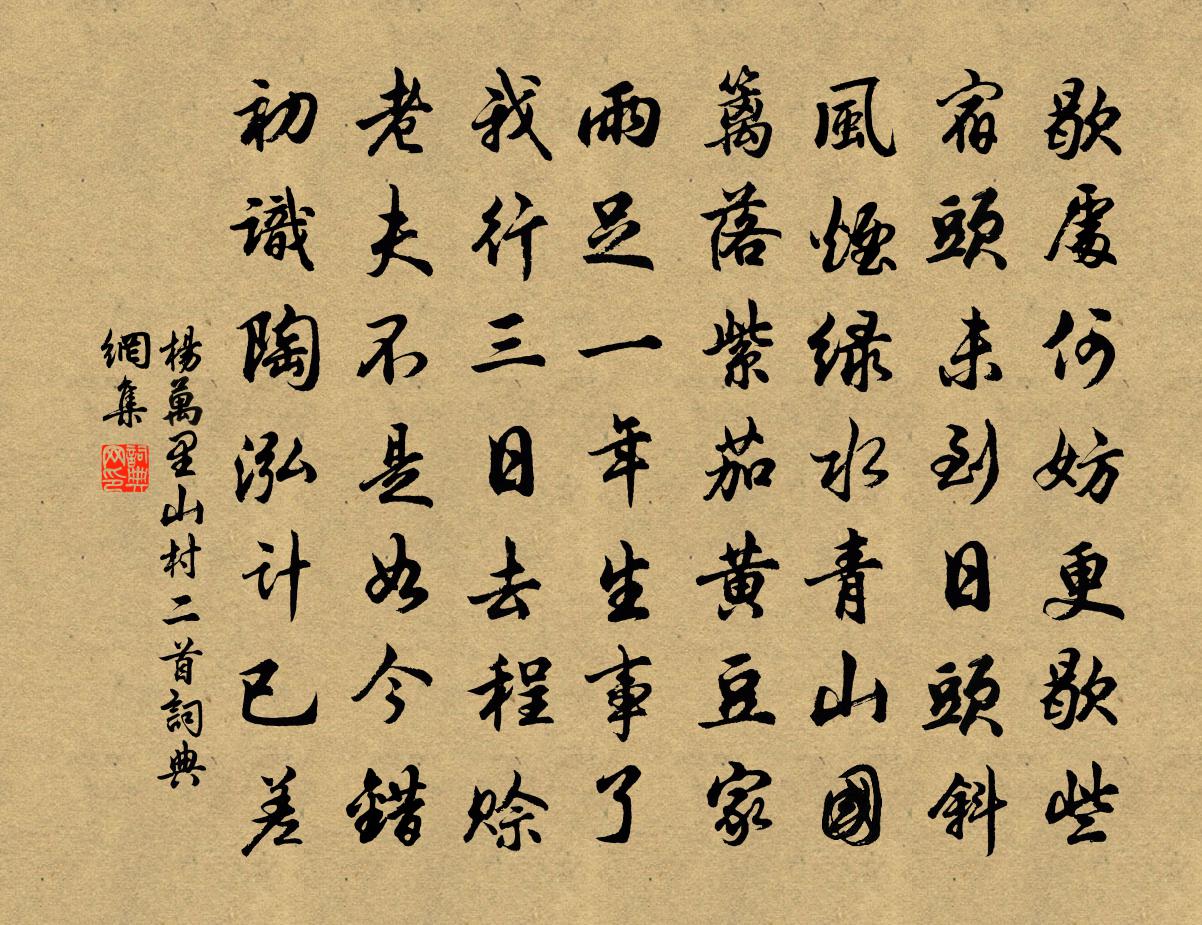 歇處何妨更歇些
宿頭未到日頭斜
風煙绿水青山國
籬落紫茄黄豆家
雨足一年生事了
我行三日去程賒
老夫不是如今錯
初識陶泓计已差
楊萬里山村二首詞典
網集
詞典
网印